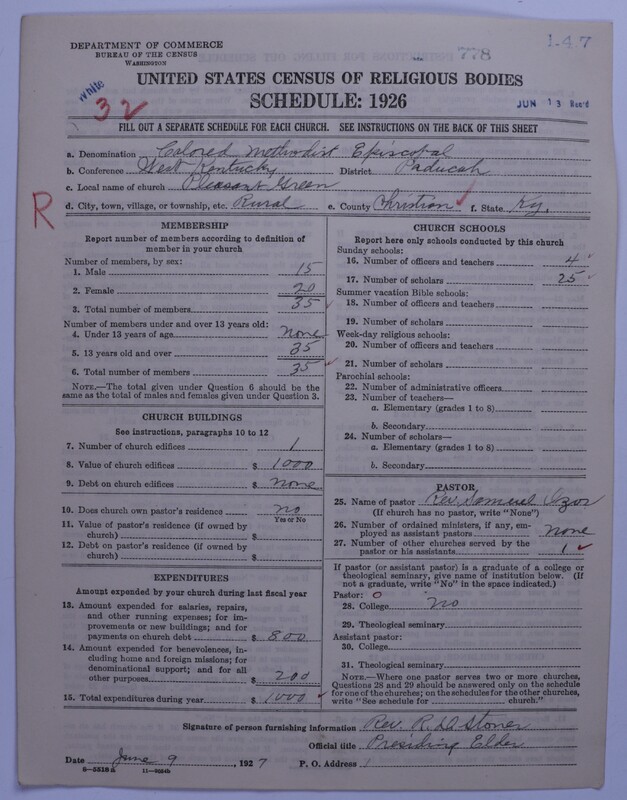 1-4-7
778
DEPARTMENT OF COMMERCE
BUREAU OF THE CENSUS
WASHINGTON
White
32
UNITED STATES CENSUS OF RELIGIOUS BODIES
SCHEDULE: 1926
JUN 13 Rec'd
FILL OUT A SEPARATE SCHEDULE FOR EACH CHURCH. SEE INSTRUCTIONS ON THE BACK OF THIS SHEET
a. Denomination Colored Methodist Episcopal
b. Conference West Kentucky District Paducah
c. Local name of church Pleasant Green
R
d. City, town, village, or township, etc. Rural e. County Christian f. State Ky.
MEMBERSHIP
Report number of members according to definition of
member in your church
Number of members, by sex:
1. Male 15
2. Female 20
3. Total number of members 35
Number of members under and over 13 years old:
4. Under 13 years of age None
5. 13 years old and over 35
6. Total number of members 35
NOTE.—The total given under Question 6 should be the
same as the total of males and females given under Question 3.
CHURCH BUILDINGS
See instructions, paragraphs 10 to 12
7. Number of church edifices 1
8. Value of church edifices $ 1000
9. Debt on church edifices $ None
10. Does church own pastor's residence no
Yes or No
11. Value of pastor's residence (if owned by
church) $
12. Debt on pastor's residence (if owned by
church) $
EXPENDITURES
Amount expended by your church during last fiscal year
13. Amount expended for salaries, repairs,
and other running expenses; for im-
provements or new buildings; and for
payments on church debt $ 800
14. Amount expended for benevolences, in-
cluding home and foreign missions; for
denominational support; and for all
other purposes $ 200
15. Total expenditures during year $ 1000
CHURCH SCHOOLS
Report here only schools conducted by this church
Sunday schools:
16. Number of officers and teachers 4
17. Number of scholars 25
Summer vacation Bible schools:
18. Number of officers and teachers
19. Number of scholars
Week-day religious schools:
20. Number of officers and teachers
21. Number of scholars
Parochial schools:
22. Number of administrative officers
23. Number of teachers—
a. Elementary (grades 1 to 8)
b. Secondary
24. Number of scholars—
a. Elementary (grades 1 to 8)
b. Secondary
PASTOR
25. Name of pastor Rev. Samuel
(If church has no pastor, write "None")
26. Number of ordained ministers, if any, em-
ployed as assistant pastors None
27. Number of other churches served by the
pastor or his assistants 1
If pastor (or assistant pastor) is a graduate of a college or
theological seminary, give name of institution below. (If
not a graduate, write "No" in the space indicated.)
Pastor: O
28. College no
29. Theological seminary
Assistant pastor:
30. College
31. Theological seminary
NOTE.—Where one pastor serves two or more churches,
Questions 28 and 29 should be answered only on the schedule
for one of the churches; on the schedules for the other churches,
write "See schedule for church."
Signature of person furnishing information Rev. R. D. Stoner
Official title Presiding Elder
Date June 9, 1927 P. O. Address
8-5518a 11-9034b